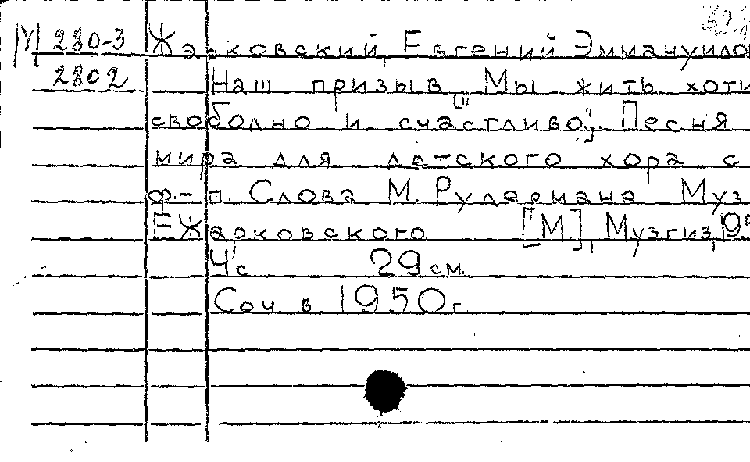 М 280-3 Жарковский, Евгений Эммануило
2802 Наш призыв "Мы жить хоти
свободно и счастливо". Песня
мира для детского хора с
ф.-п. Слова М. Рудермана Муз
Е Жарковского [М.], Музгиз, 19
4 с 29 см.
Соч в 1950 г.